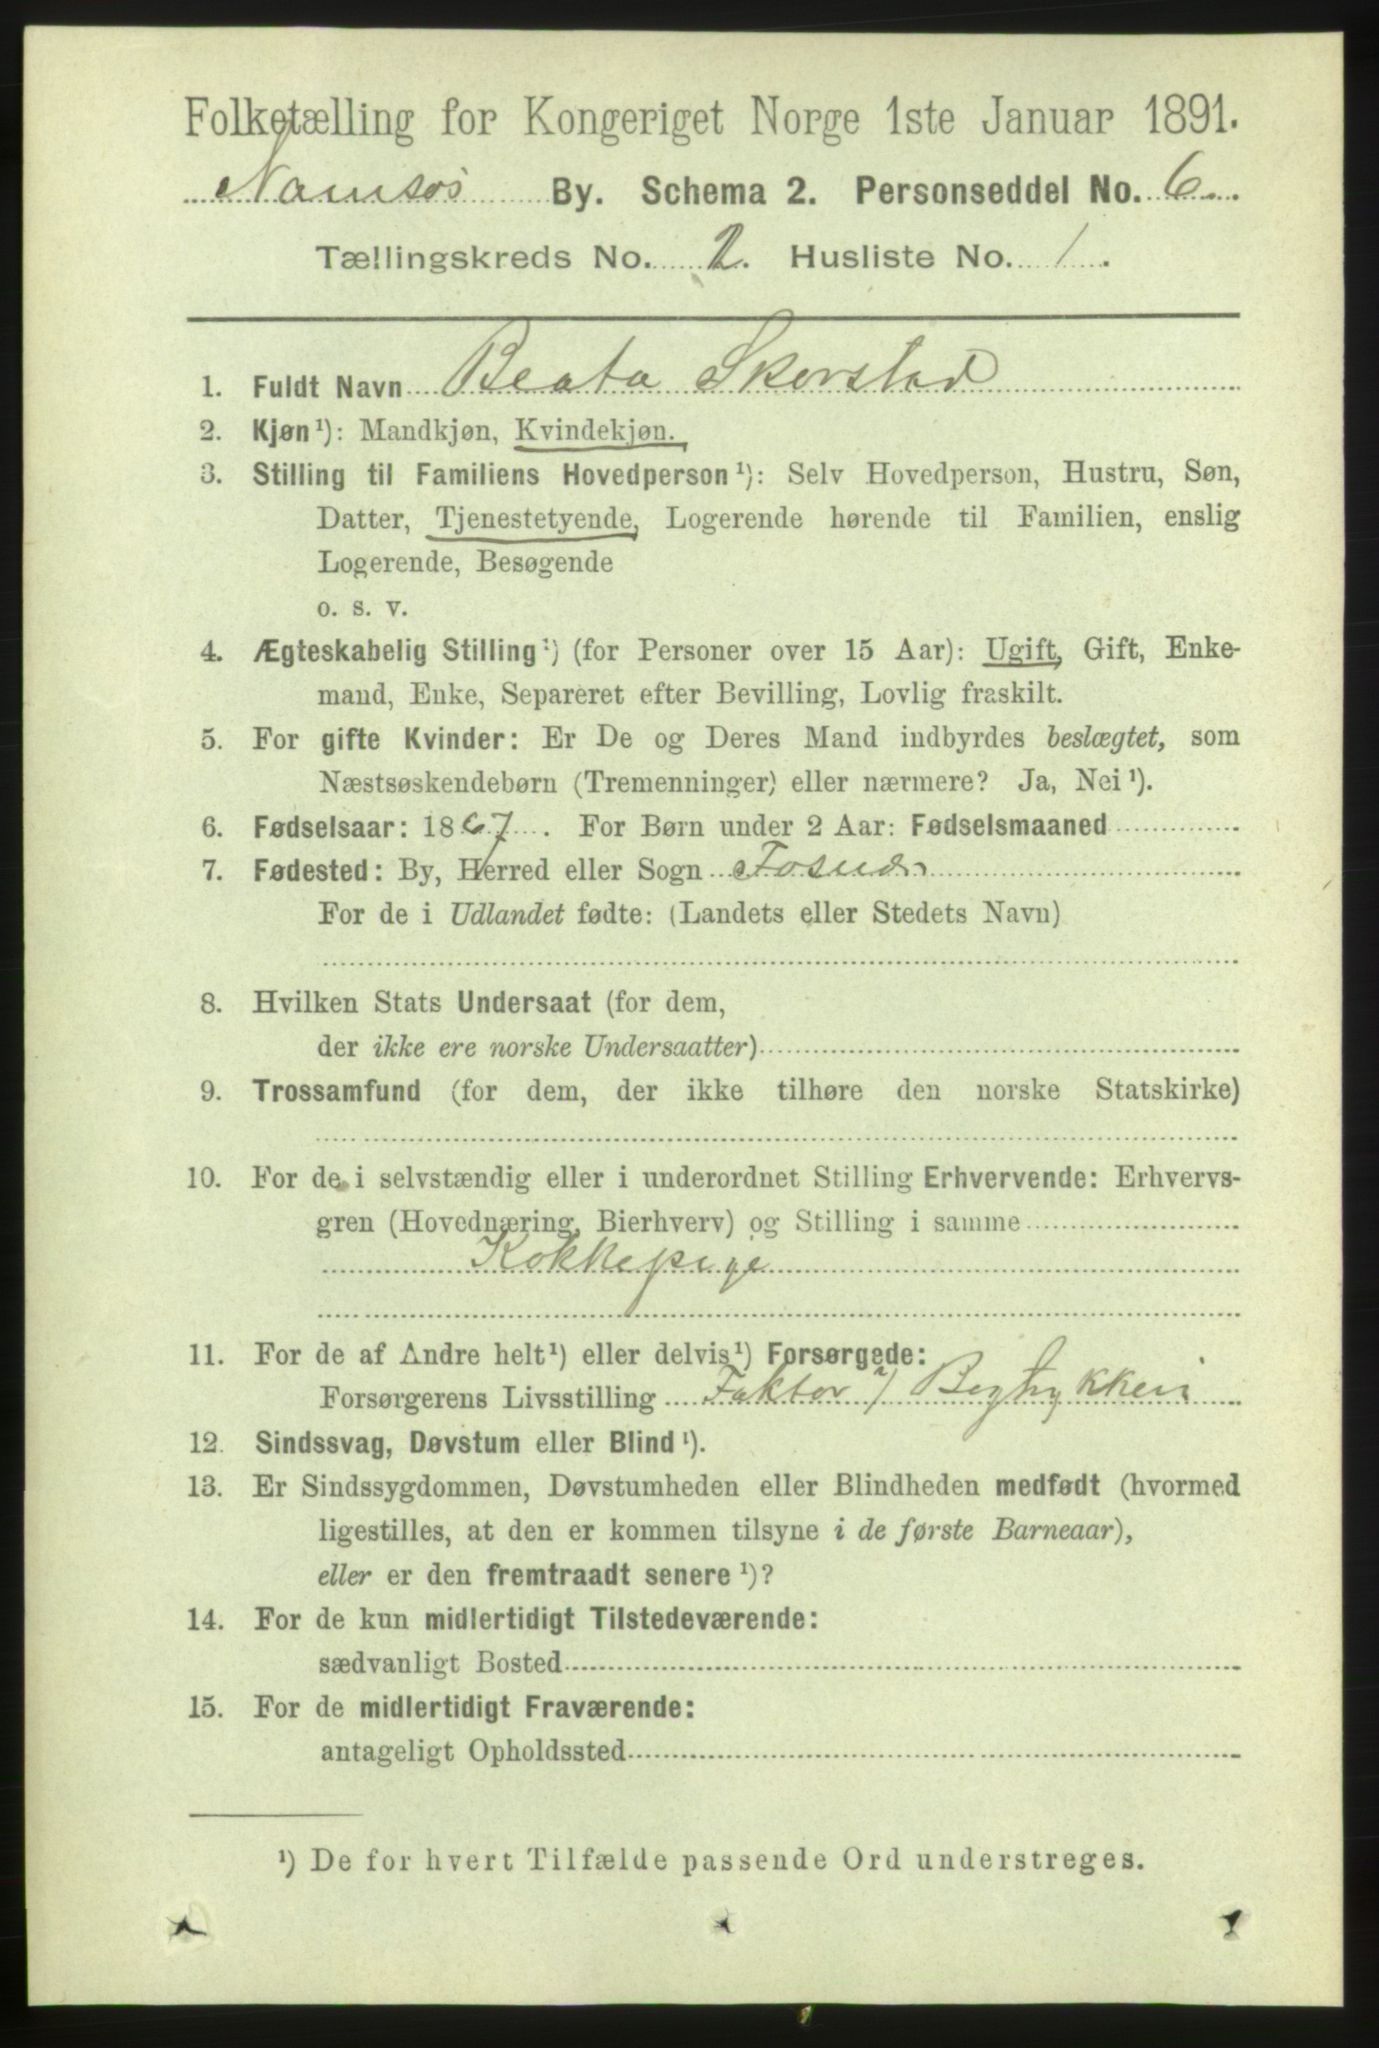 Folketælling for Kongeriget Norge 1ste Januar 1891.
Namsos By. Schema 2. Personseddel No. 6
Tællingskreds No. 2. Husliste No. 1.
1. Fuldt Navn Beata Skorstad
2. Kjøn ¹): Mandkjøn, Kvindekjøn.
3. Stilling til Familiens Hovedperson ¹): Selv Hovedperson, Hustru, Søn,
Datter, Tjenestetyende, Logerende hørende til Familien, enslig
Logerende, Besøgende
o. s. v.
4. Ægteskabelig Stilling ¹) (for Personer over 15 Aar): Ugift, Gift, Enke-
mand, Enke, Separeret efter Bevilling, Lovlig fraskilt.
5. For gifte Kvinder: Er De og Deres Mand indbyrdes beslægtet, som
Næstsøskendebørn (Tremenninger) eller nærmere? Ja, Nei ¹).
6. Fødselsaar: 1867. For Børn under 2 Aar: Fødselsmaaned
7. Fødested: By, Herred eller Sogn Fosnæs
For de i Udlandet fødte: (Landets eller Stedets Navn)
8. Hvilken Stats Undersaat (for dem,
der ikke ere norske Undersaatter)
9. Trossamfund (for dem, der ikke tilhøre den norske Statskirke)
10. For de i selvstændig eller i underordnet Stilling Erhvervende: Erhvervs-
gren (Hovednæring, Bierhverv) og Stilling i samme
Kokkepige
11. For de af Andre helt ¹) eller delvis ¹) Forsørgede:
Forsørgerens Livsstilling Faktor Bogtrykkeri
12. Sindssvag, Døvstum eller Blind ¹).
13. Er Sindssygdommen, Døvstumheden eller Blindheden medfødt (hvormed
ligestilles, at den er kommen tilsyne i de første Barneaar),
eller er den fremtraadt senere ¹)?
14. For de kun midlertidigt Tilstedeværende:
sædvanligt Bosted
15. For de midlertidigt Fraværende:
antageligt Opholdssted
¹) De for hvert Tilfælde passende Ord understreges.